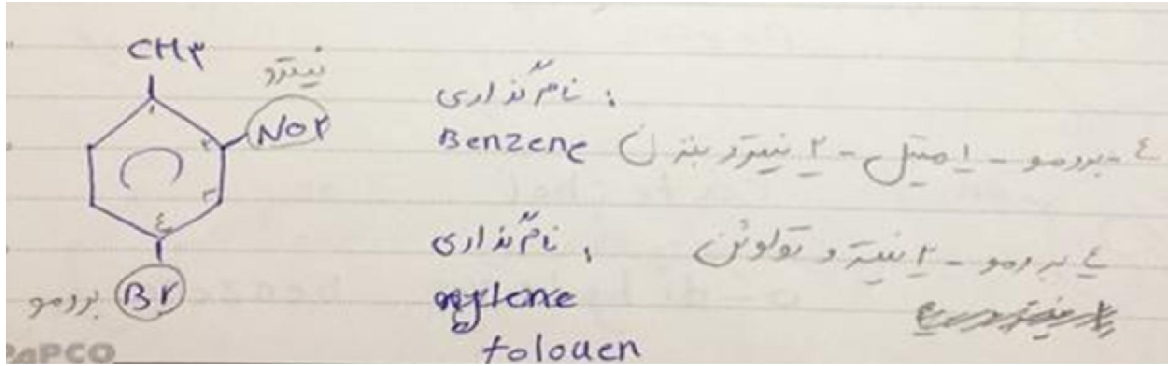 CH۳
نیترو
NO۲
۱
۲
۳
٤
Br
برومو
نام گذاری :
Benzene ٤-برومو - ۱ متیل - ۲ نیترو بنزن
نام گذاری :
٤ برومو - ۲ نیترو تولوئن
tolouen
PAPCO